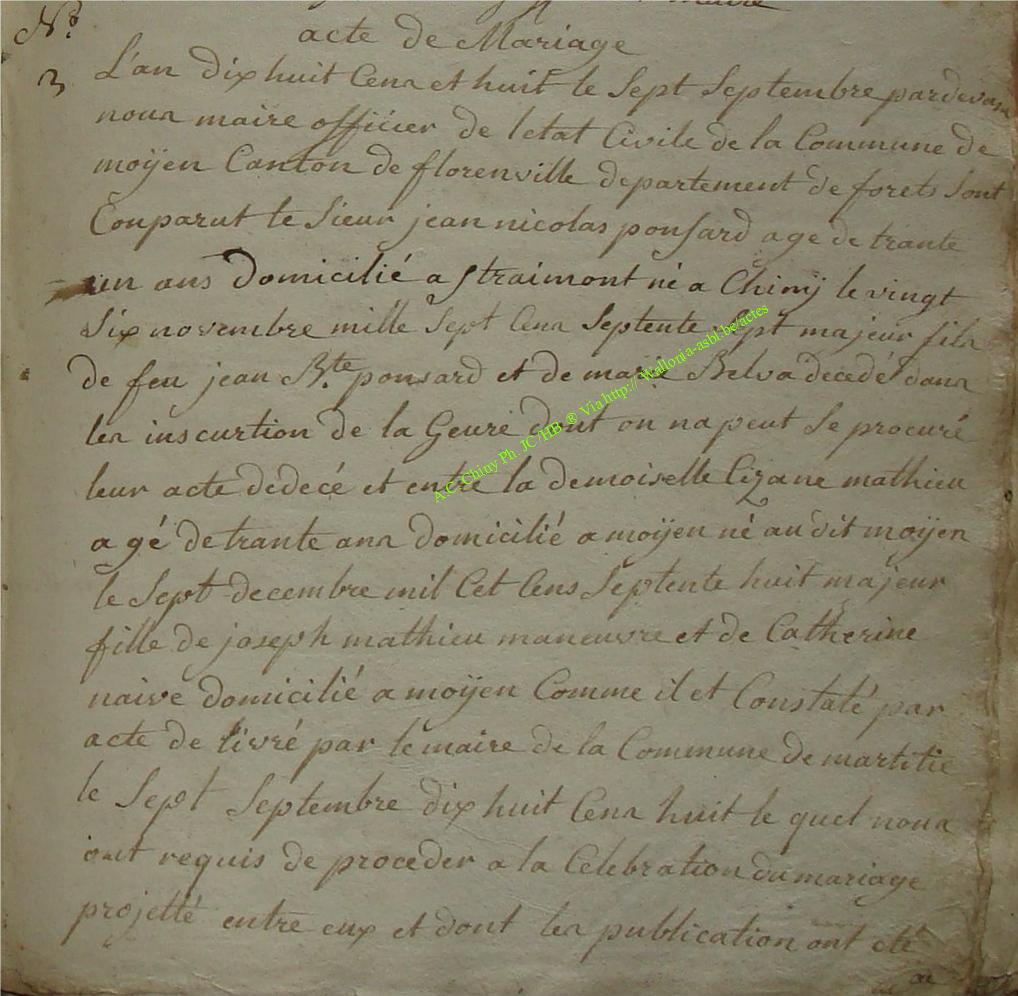 maire
N.º acte de Mariage
3 L'an dix huit Cens et huit le Sept Septembre pardevan
nous maire officier de letat Civile de la Commune de
moÿen Canton de florenville departement de forets sont
Conparut le Sieur jean nicolas ponsard age de trante
un ans domicilié a straimont né a Chinÿ le vingt
Six novembre mille Sept Cens Septente Sept majeur fils
de feu jean B.te ponsard et de marie Belva decedé dans
les inscurtion de la Geure dont on na peut se procuré
leur acte dedecé et entre la demoiselle Cizane mathieu
agé de trante ans domicilié a moÿen né au dit moÿen
le Sept decembre mil Cet Cens Septente huit majeur
fille de joseph mathieu maneuvre et de Catherine
naive domicilié a moÿen Comme il et Constaté par
acte de livré par le maire de la Commune de
le Sept Septembre dix huit Cens huit le quel nous
ont requis de proceder a la Celebration du mariage
projetté entre eux et dont les publication ont eté
A.C. Chiny Ph. JC /HB ® Via http:// Wallonia-asbl.be/actes